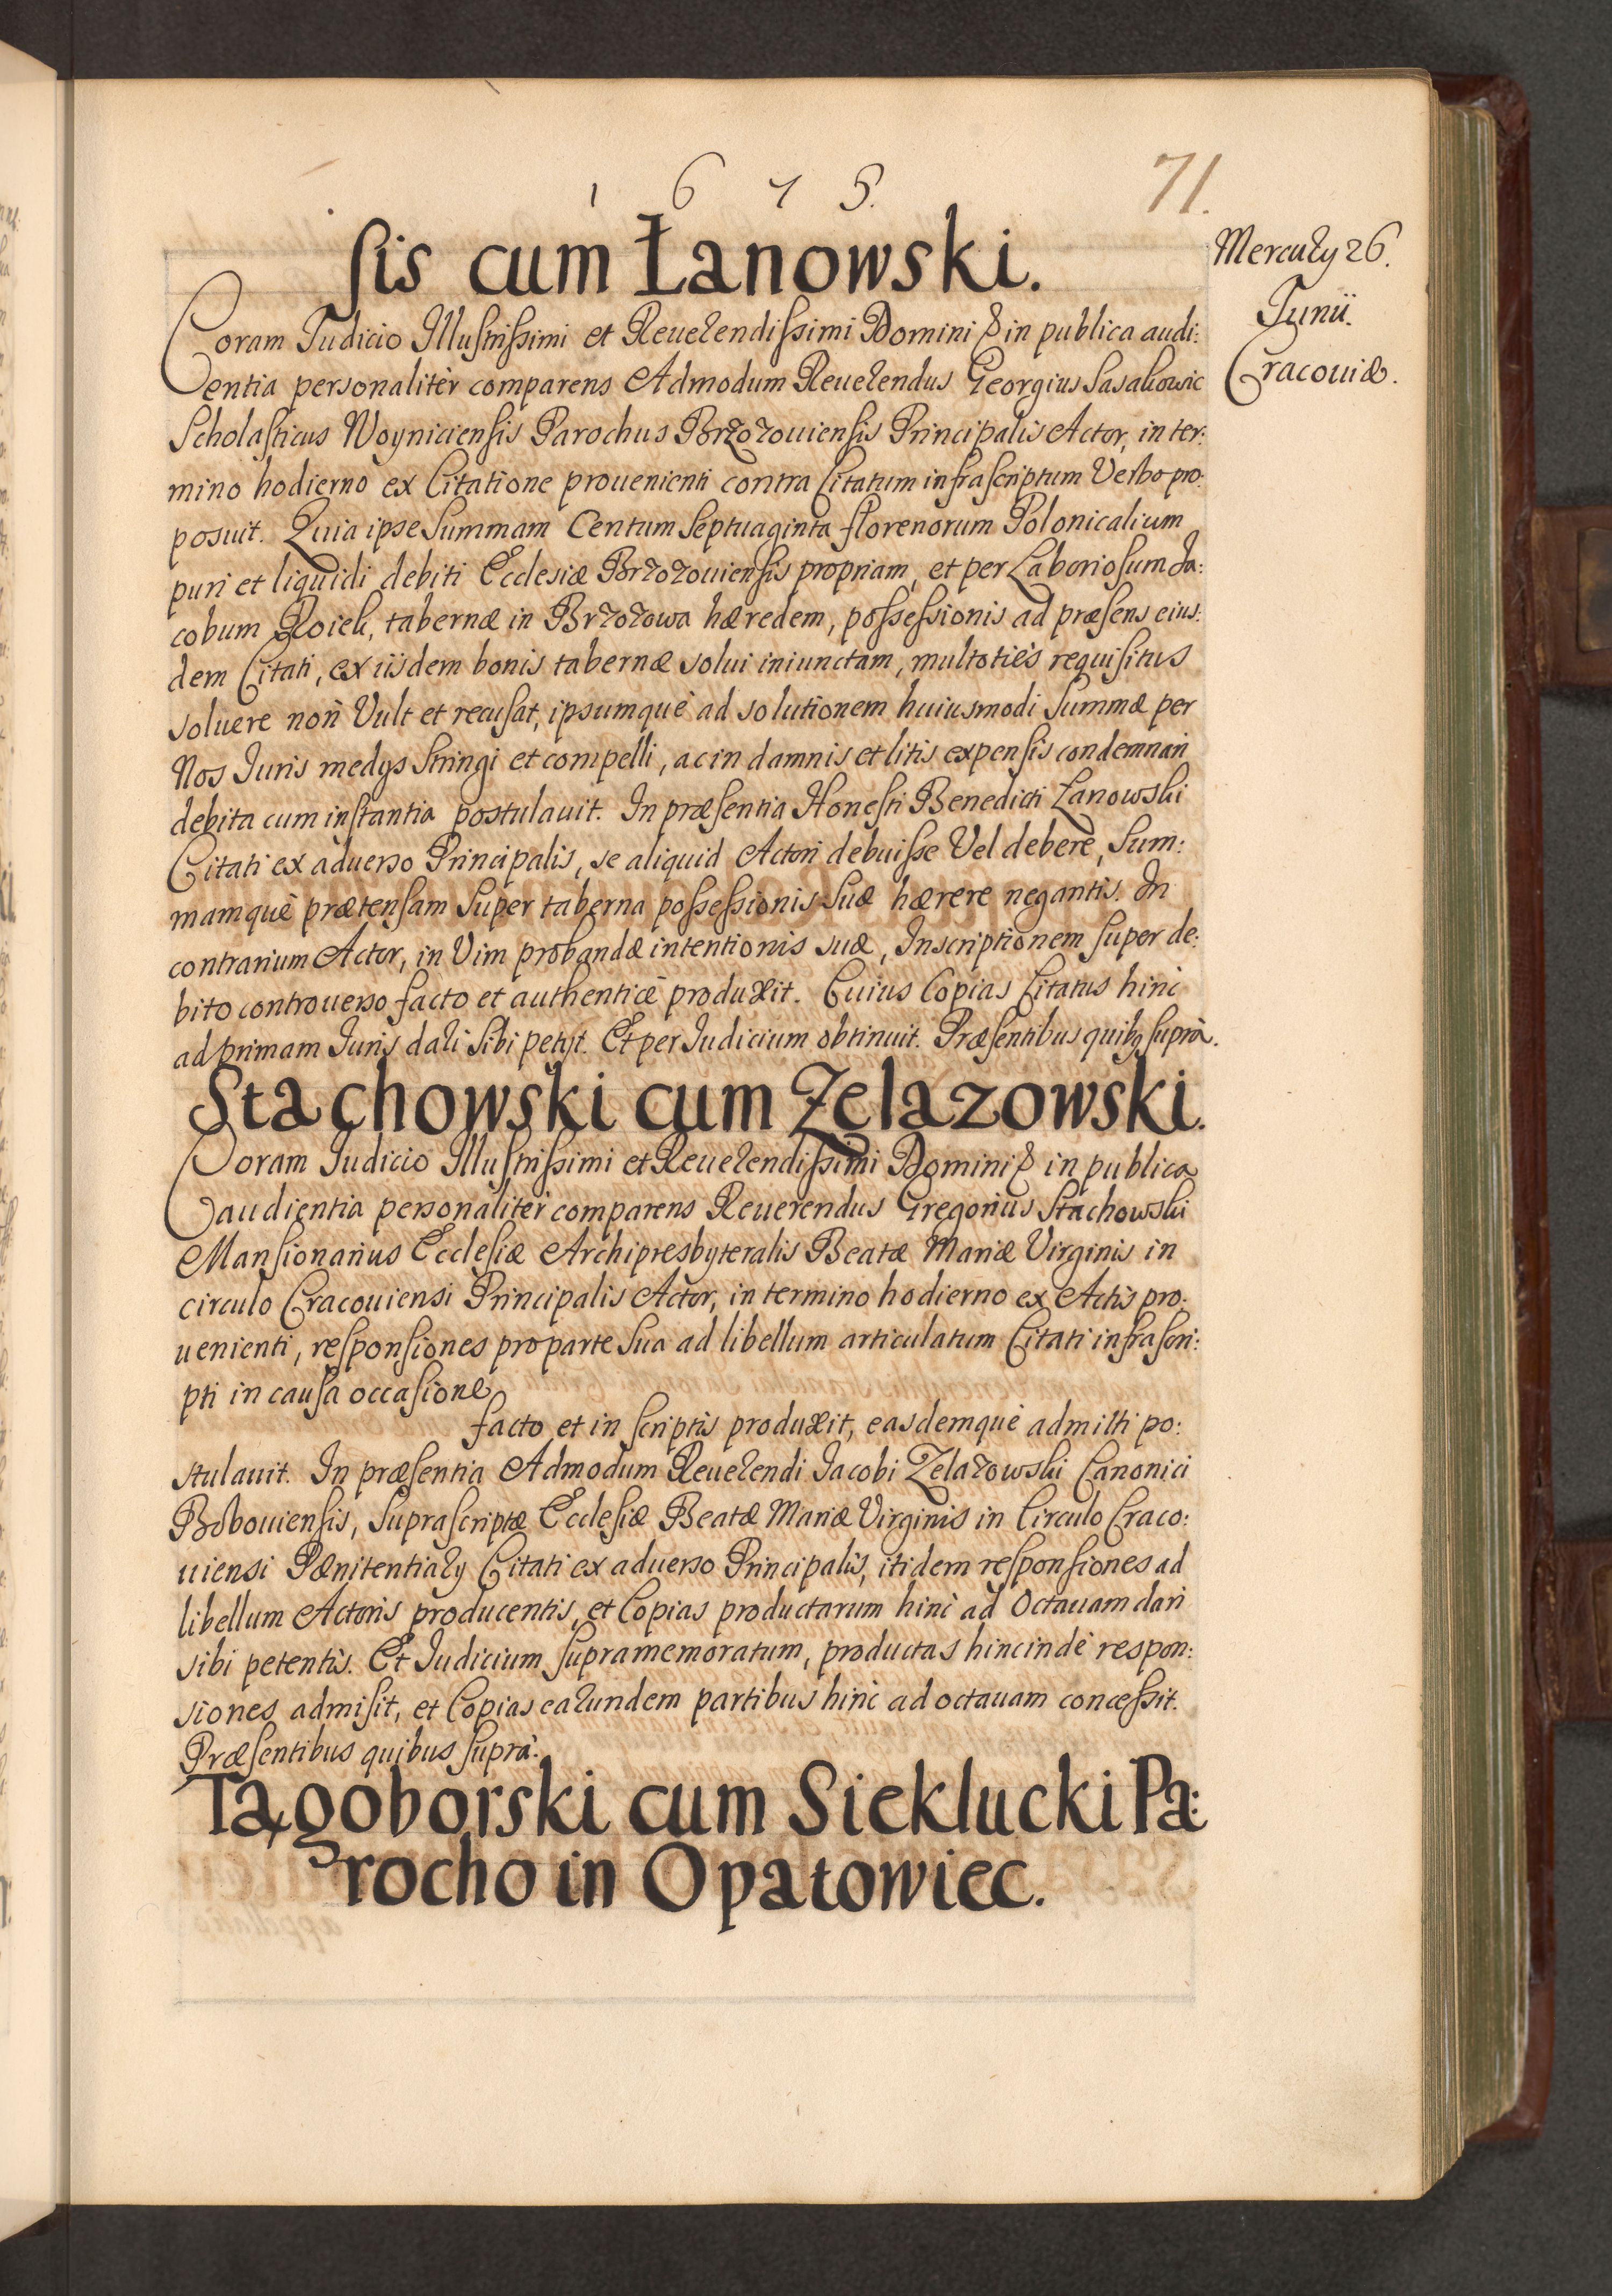 1 6 7 5.
71.
sis cum Łanowski.
Mercurÿ 26.
Junii.
Cracouiæ.
Coram Judicio Illustrissimi et Reuerendissimi Domini & in publica audi:
entia personalitèr comparens Admodum Reuerendus Georgius Sasakowic
Scholasticus Woyniciensis Parochus Brzozouiensis Principalis Actor, in ter:
mino hodierno ex Citatione prouenienti contra Citatum infrascriptum Verbo pro:
posuit. Quia ipse Summam Centum Septuaginta florenorum Polonicalium
puri et liquidi debiti Ecclesiæ Brzozouiensis propriam, et per Laboriosum Ja:
cobum Roiek, tabernæ in Brzozowa hæredem, possessionis ad præsens eius:
dem Citati, ex iisdem bonis tabernæ solui iniunctam, multotiès requisitus
soluere non Vult et recusat, ipsumquè ad solutionem huiusmodi Summæ per
Nos Juris medÿs stringi et compelli, ac in damnis et litis expensis condemnari
debita cum instantia postulauit. In præsentia Honesti Benedicti Łanowski
Citati ex aduerso Principalis, se aliquid Actori debuisse Vel debere, Sum:
mamquè prætensam super taberna possessionis suæ hærere negantis. In
contrarium Actor, in Vim probandæ intentionis suæ, Inscriptionem super de:
bito controuerso facto et authenticè produxit. Cuius Copias Citatus hinc
ad primam Juris dari sibi petÿt. Et per Judicium obtinuit. Præsentibus quibq suprà.
Stachowski cum Zelazowski.
Coram Judicio Illustrissimi et Reuerendissimi Domini & in publica
audientia personalitèr comparens Reuerendus Gregorius Stachowski
Mansionarius Ecclesiæ Archipresbyteralis Beatæ Mariæ Virginis in
circulo Cracouiensi Principalis Actor, in termino hodierno ex Actis pro:
uenienti, responsiones pro parte sua ad libellum articulatum Citati infrascri:
pti in causa occasione
facto et in scriptis produxit, easdemquè admitti po:
stulauit. In præsentia Admodum Reuerendi Jacobi Zelazowski Canonici
Bobouiensis, suprascriptæ Ecclesiæ Beatæ Mariæ Virginis in Circulo Craco:
uiensi Pænitentiarÿ Citati ex aduerso Principalis, itidem responsiones ad
libellum Actoris producentis, et Copias productarum hinc ad Octauam dari
sibi petentis. Et Judicium supramemoratum, productas hincindè respon:
siones admisit, et Copias earundem partibus hinc ad octauam concessit.
Præsentibus quibus suprà.
Tągoborski cum Sieklucki Pa:
rocho in Opatowiec.